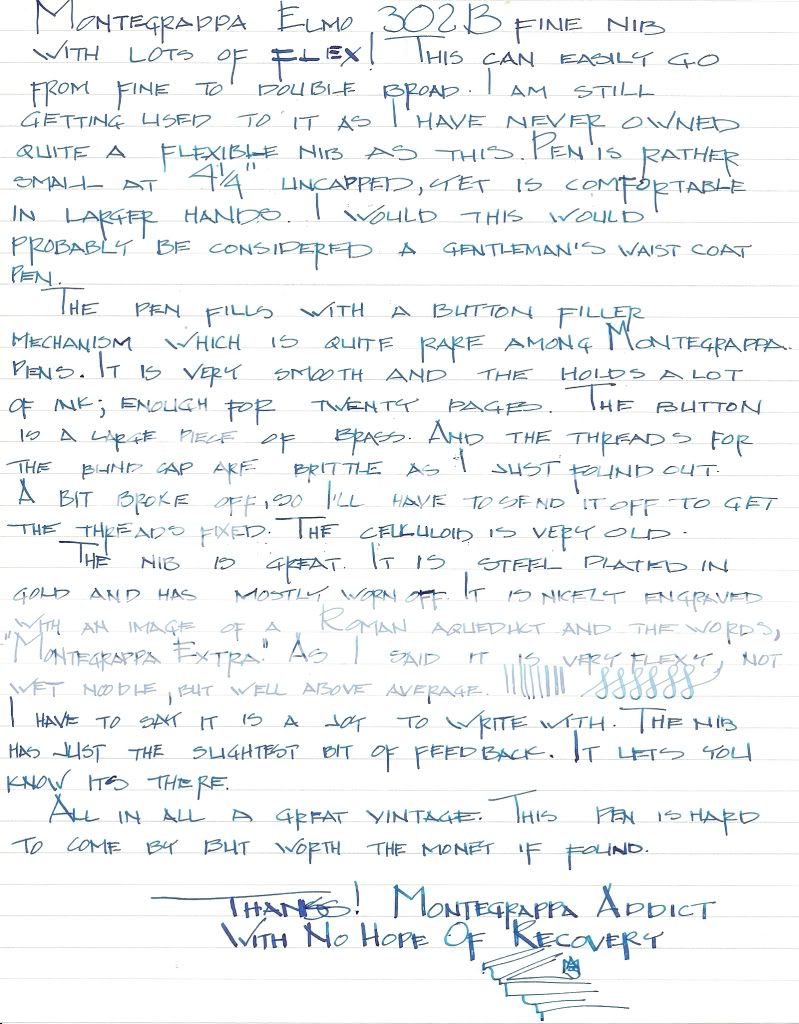 Montegrappa Elmo 302B fine nib
with lots of FLEX! This can easily go
from fine to double broad. I am still
getting used to it as I have never owned
quite a flexible nib as this. Pen is rather
small at 4¼" uncapped, yet is comfortable
in larger hands. I would this would
probably be considered a gentleman's waist coat
pen.
The pen fills with a button filler
mechanism which is quite rare among Montegrappa
pens. It is very smooth and the holds a lot
of ink; enough for twenty pages. The button
is a large piece of brass. And the threads for
the blind cap are brittle as I just found out.
A bit broke off, so I'll have to send it off to get
the threads fixed. The celluloid is very old.
The nib is great. It is steel plated in
gold and has mostly worn off. It is nicely engraved
with an image of a Roman aqueduct and the words,
"Montegrappa Extra." As I said it is very flexy, not
wet noodle, but well above average.
I have to say it is a joy to write with. The nib
has just the slightest bit of feedback. It lets you
know its there.
All in all a great vintage. This pen is hard
to come by but worth the money if found.
Thanks! Montegrappa Addict
With No Hope Of Recovery